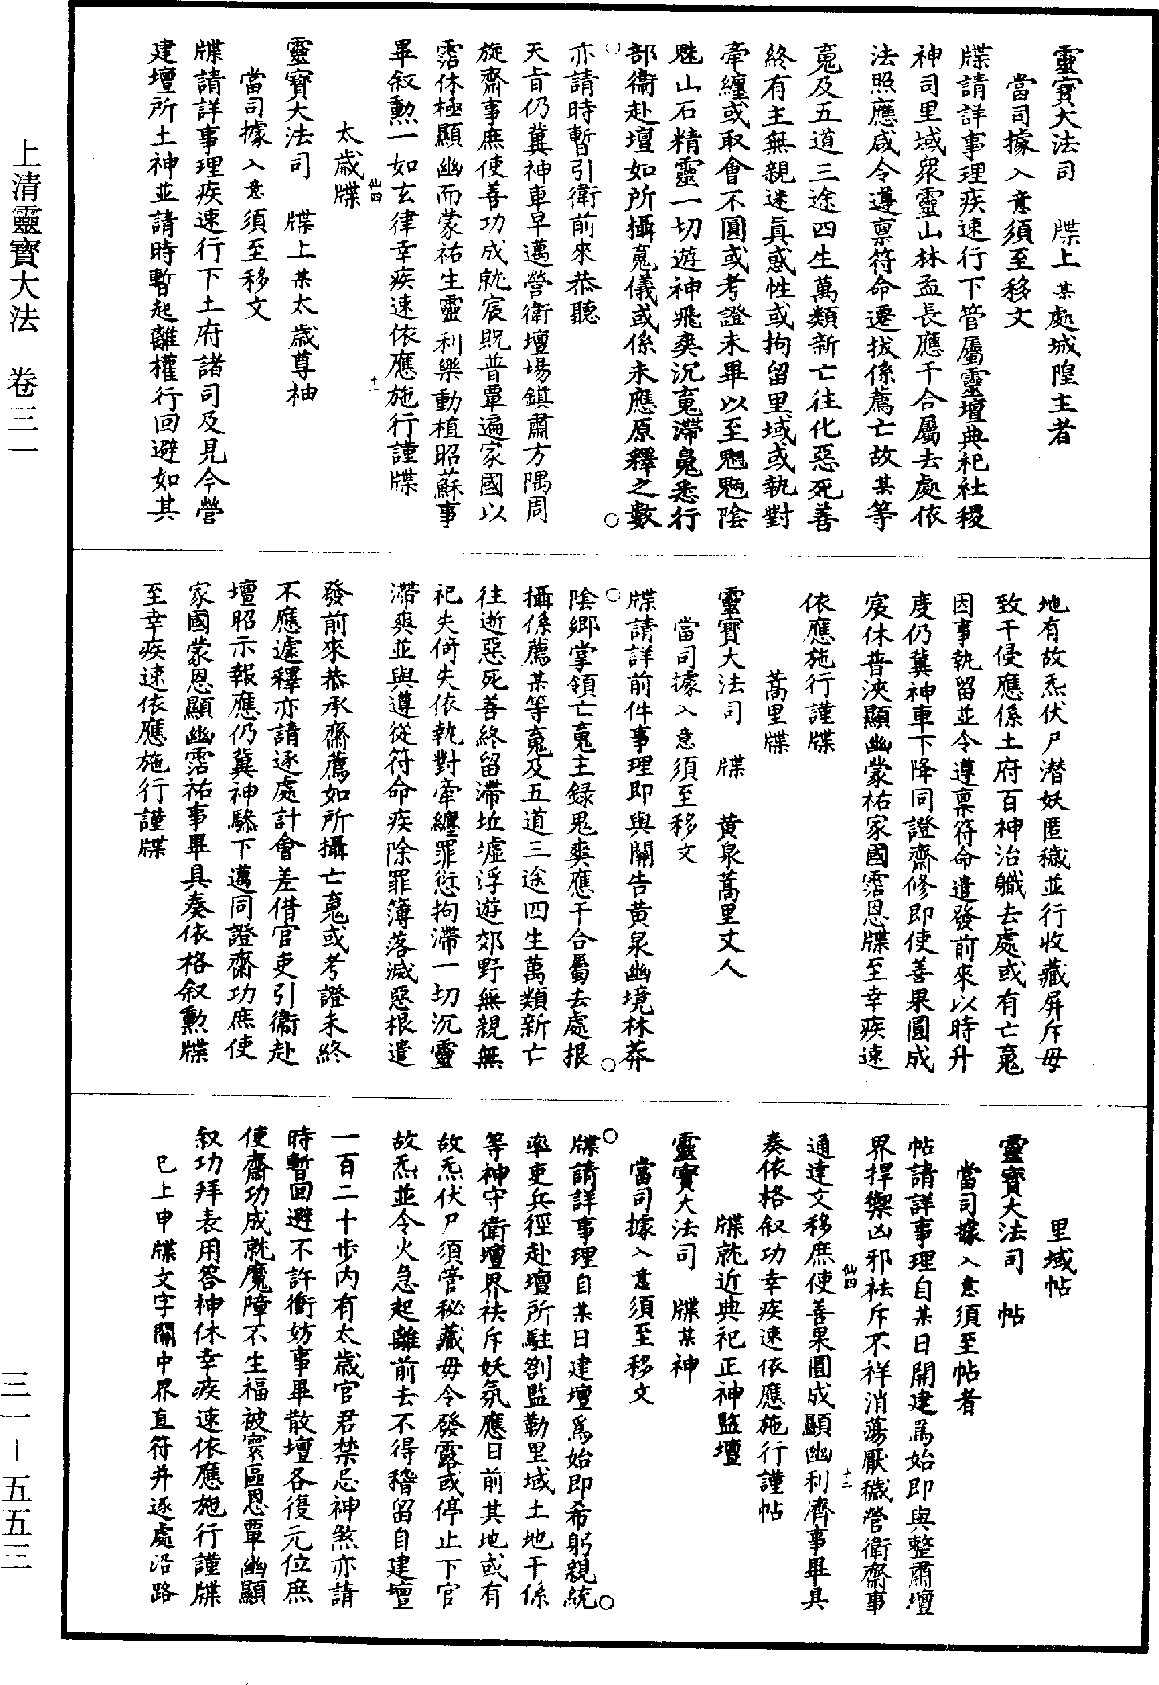 上清靈寶大法　卷三一
靈寶大法司　牒上某處城隍主者
當司據入意須至移文
牒請詳事理疾速行下管屬靈壇典祀社稷
神司里域衆靈山林孟長應干合屬去處依
法照應咸令遵禀符命遷拔係薦亡故某等
䰟及五道三途四生萬類新亡往化惡死善
終有主無親迷眞惑性或拘留里域或執對
牽纏或取會不圓或考證未畢以至魍魎陰
魅山石精靈一切遊神飛爽沉䰟滯魄悉行
部衞赴壇如所攝䰟儀或係未應原釋之數
亦請時暫引衛前來恭聽
天旨仍冀神車早邁營衛壇場鎮肅方隅周
旋齋事庶使善功成就宸貺普覃遍家國以
霑休極顯幽而蒙祐生靈利樂動植昭蘇事
畢叙勲一如玄律幸疾速依應施行謹牒
仙四
十一
太歲牒
靈寶大法司　牒上某太歲尊神
當司據入意須至移文
牒請詳事理疾速行下土府諸司及見今營
建壇所土神並請時暫起離權行回避如其
地有故炁伏尸潜妖匿穢並行收藏屏斥毋
致干侵應係土府百神治職去處或有亡䰟
因事執留並令遵禀符命遣發前來以時升
度仍冀神車下降同證齋修即使善果圓成
宸休普浹顯幽蒙祐家國霑恩牒至幸疾速
依應施行謹牒
蒿里牒
靈寶大法司　牒　黄泉蒿里丈人
當司據入意須至移文
牒請詳前件事理即與關告黄泉幽境林莽
陰鄉掌領亡䰟主録鬼爽應干合屬去處根
攝係薦某等䰟及五道三途四生萬類新亡
往逝惡死善終留滯坵墟浮遊郊野無親無
祀失倚失依執對牽纏罪愆拘滯一切沉靈
滯爽並與遵從符命疾除罪簿落滅惡根遣
發前來恭承齋薦如所攝亡䰟或考證未終
不應遽釋亦請逐處計會差借官吏引衞赴
壇昭示報應仍冀神驂下邁同證齋功庶使
家國蒙恩顯幽霑祐事畢具奏依格叙勲牒
至幸疾速依應施行謹牒
里域帖
靈寶大法司　帖
當司據入意須至帖者
帖請詳事理自某日開建爲始即與整肅壇
界捍禦凶邪袪斥不祥消蕩厭穢營衛齋事
通達文移庶使善果圓成顯幽利濟事畢具
奏依格叙功幸疾速依應施行謹帖
仙四
十二
牒就近典祀正神監壇
靈寶大法司　牒某神
當司據入意須至移文
牒請詳事理自某日建壇爲始即希躬親統
率吏兵徑赴壇所駐劄監勒里域土地干係
等神守衛壇界袪斥妖氛應日前其地或有
故炁伏尸須管秘藏毋令發露或停止下官
故炁並令火急起離前去不得稽留自建壇
一百二十步内有太歲官君禁忌神煞亦請
時暫回避不許衝妨事畢散壇各復元位庶
使齋功成就魔障不生福被寰區恩覃幽顯
叙功拜表用答神休幸疾速依應施行謹牒
已上申牒文字關中界直符并逐處沿路
三一－五五三